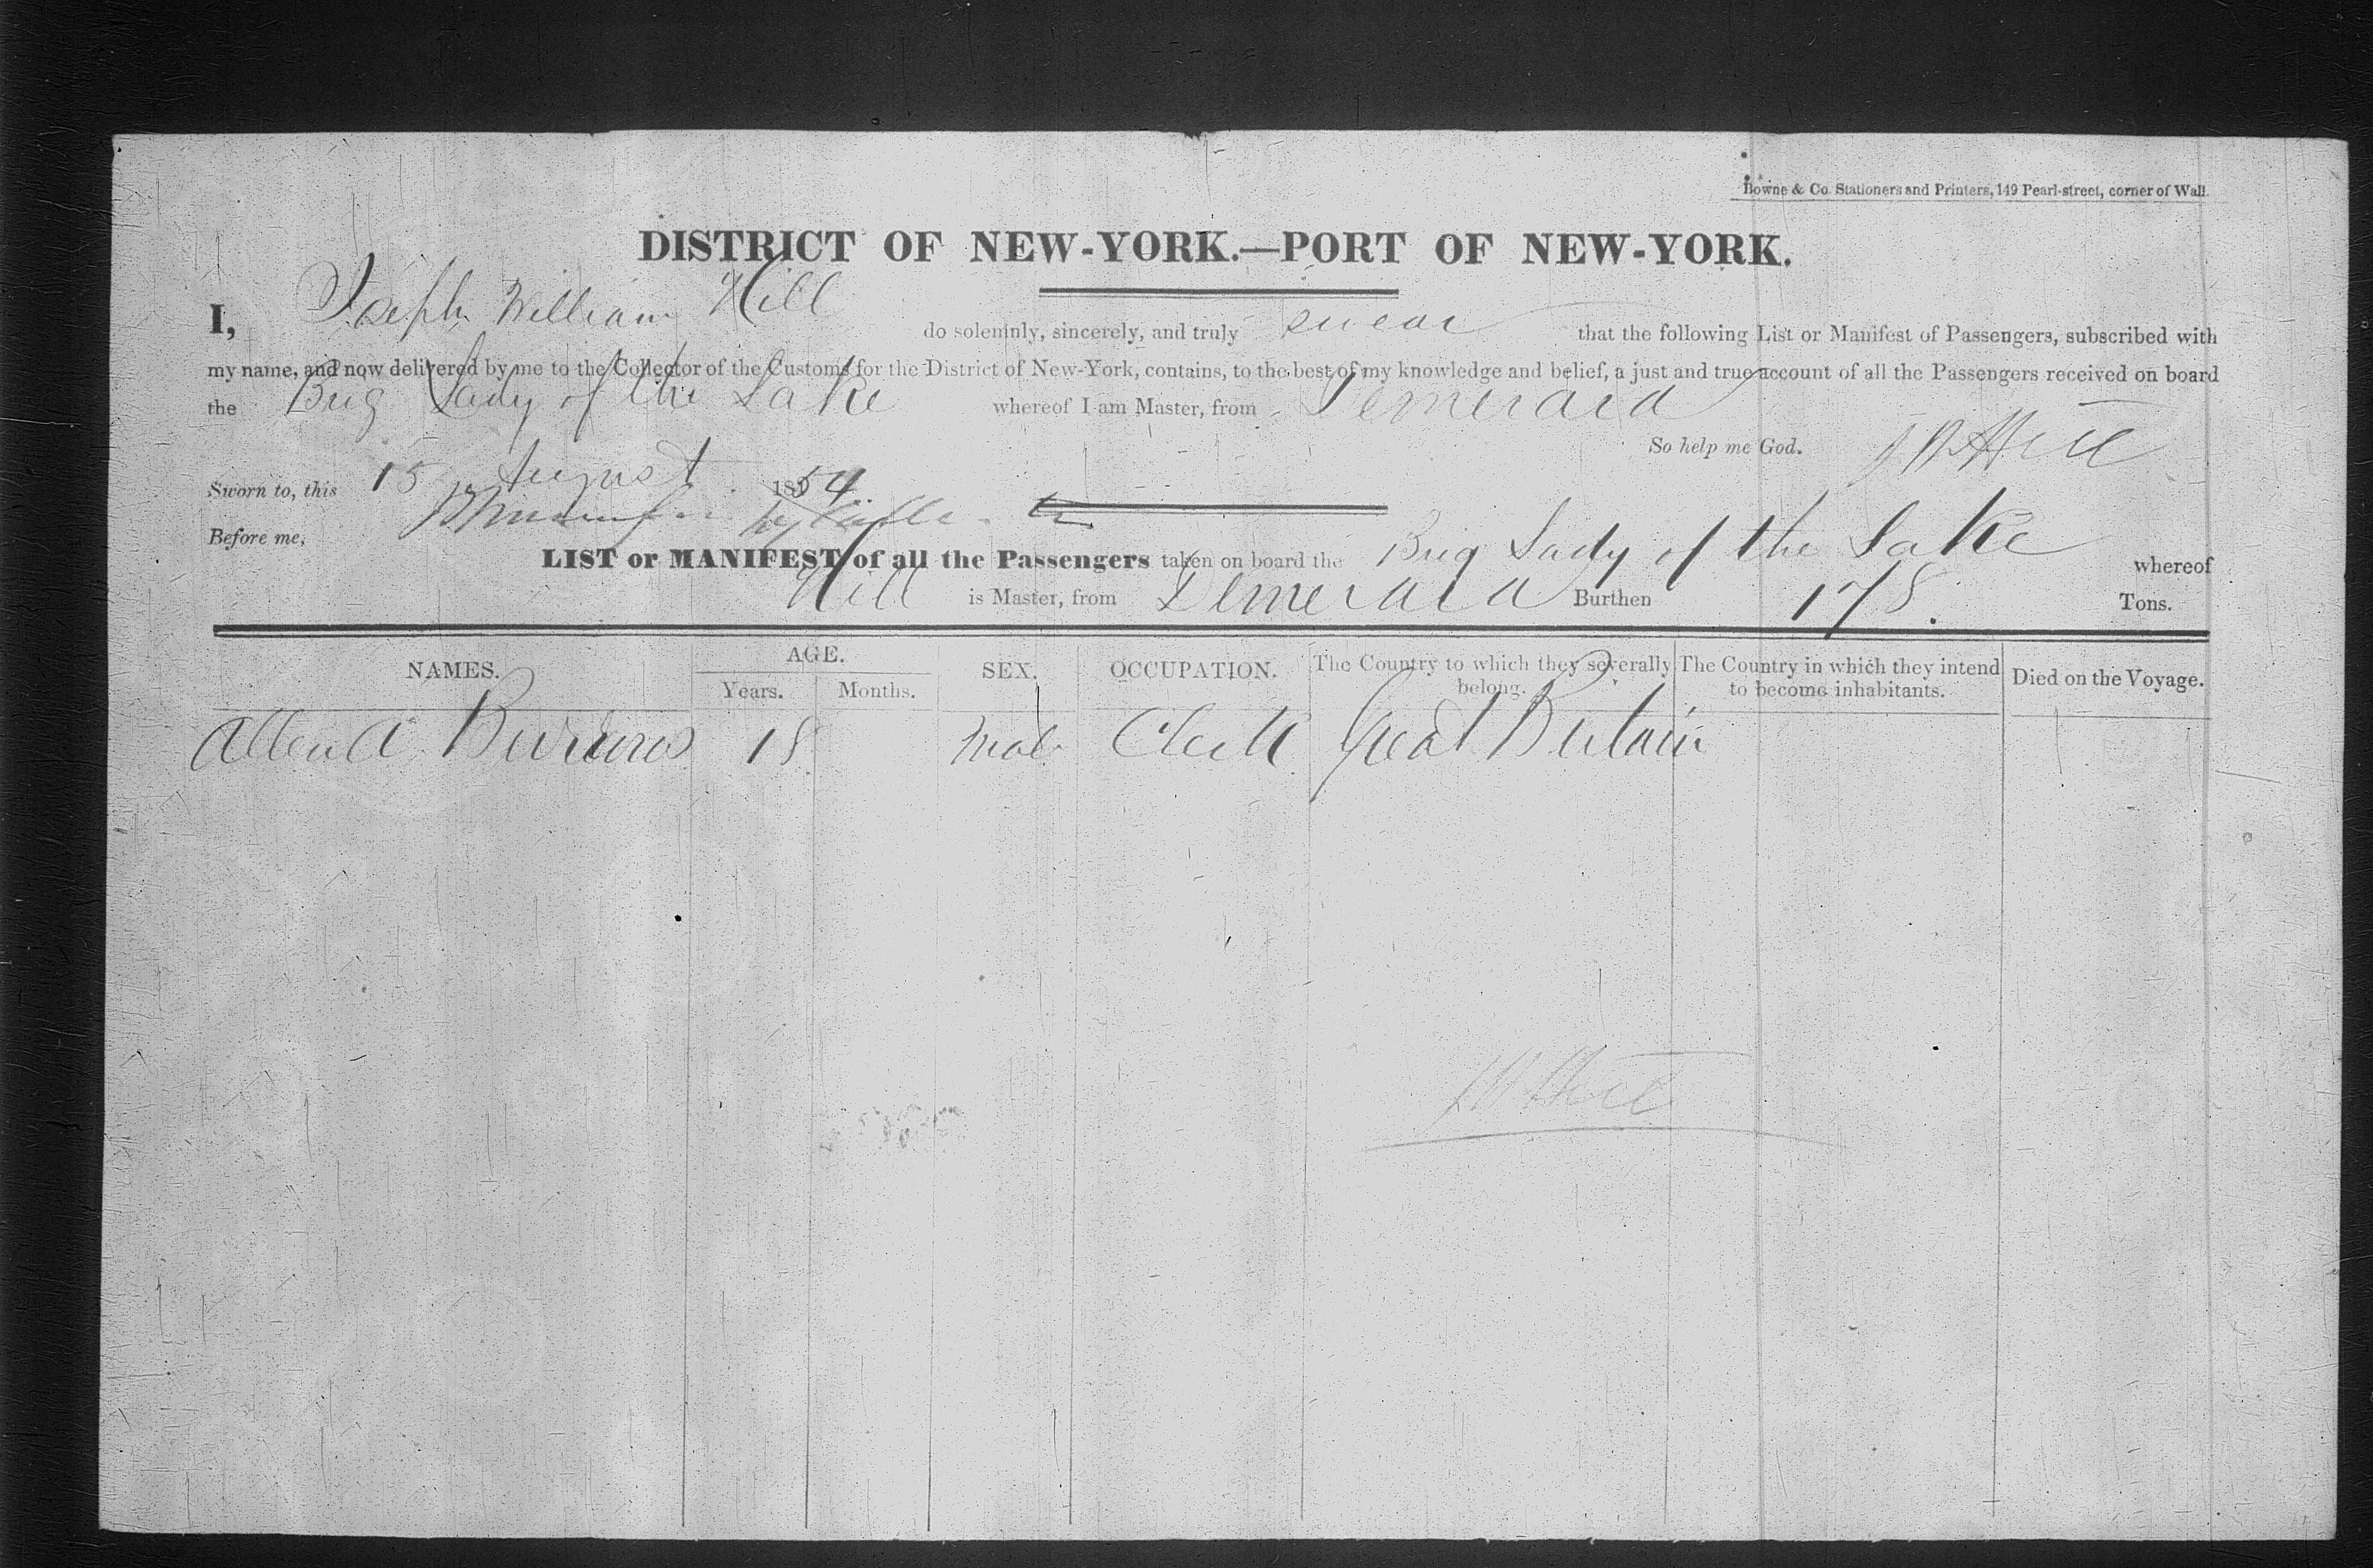 Bowne & Co. Stationers and Printers, 149 Pearl-street, corner of Wall.
DISTRICT OF NEW-YORK.—PORT OF NEW-YORK.
I, Joseph William Hill do solemnly, sincerely, and truly swear that the following List or Manifest of Passengers, subscribed with
my name, and now delivered by me to the Collector of the Customs for the District of New-York, contains, to the best of my knowledge and belief, a just and true account of all the Passengers received on board
the Brig Lady of the Lake whereof I am Master, from Demerara
So help me God. J W Hill
Sworn to, this 15 August 1854
Before me,
LIST or MANIFEST of all the Passengers taken on board the Brig Lady of the Lake whereof
Hill is Master, from Demerara Burthen 178 Tons.
NAMES. AGE. Years. Months. SEX. OCCUPATION. The Country to which they severally belong. The Country in which they intend to become inhabitants. Died on the Voyage.
Allen A Burrows 18 Male Clerk Great Britain
J W Hill